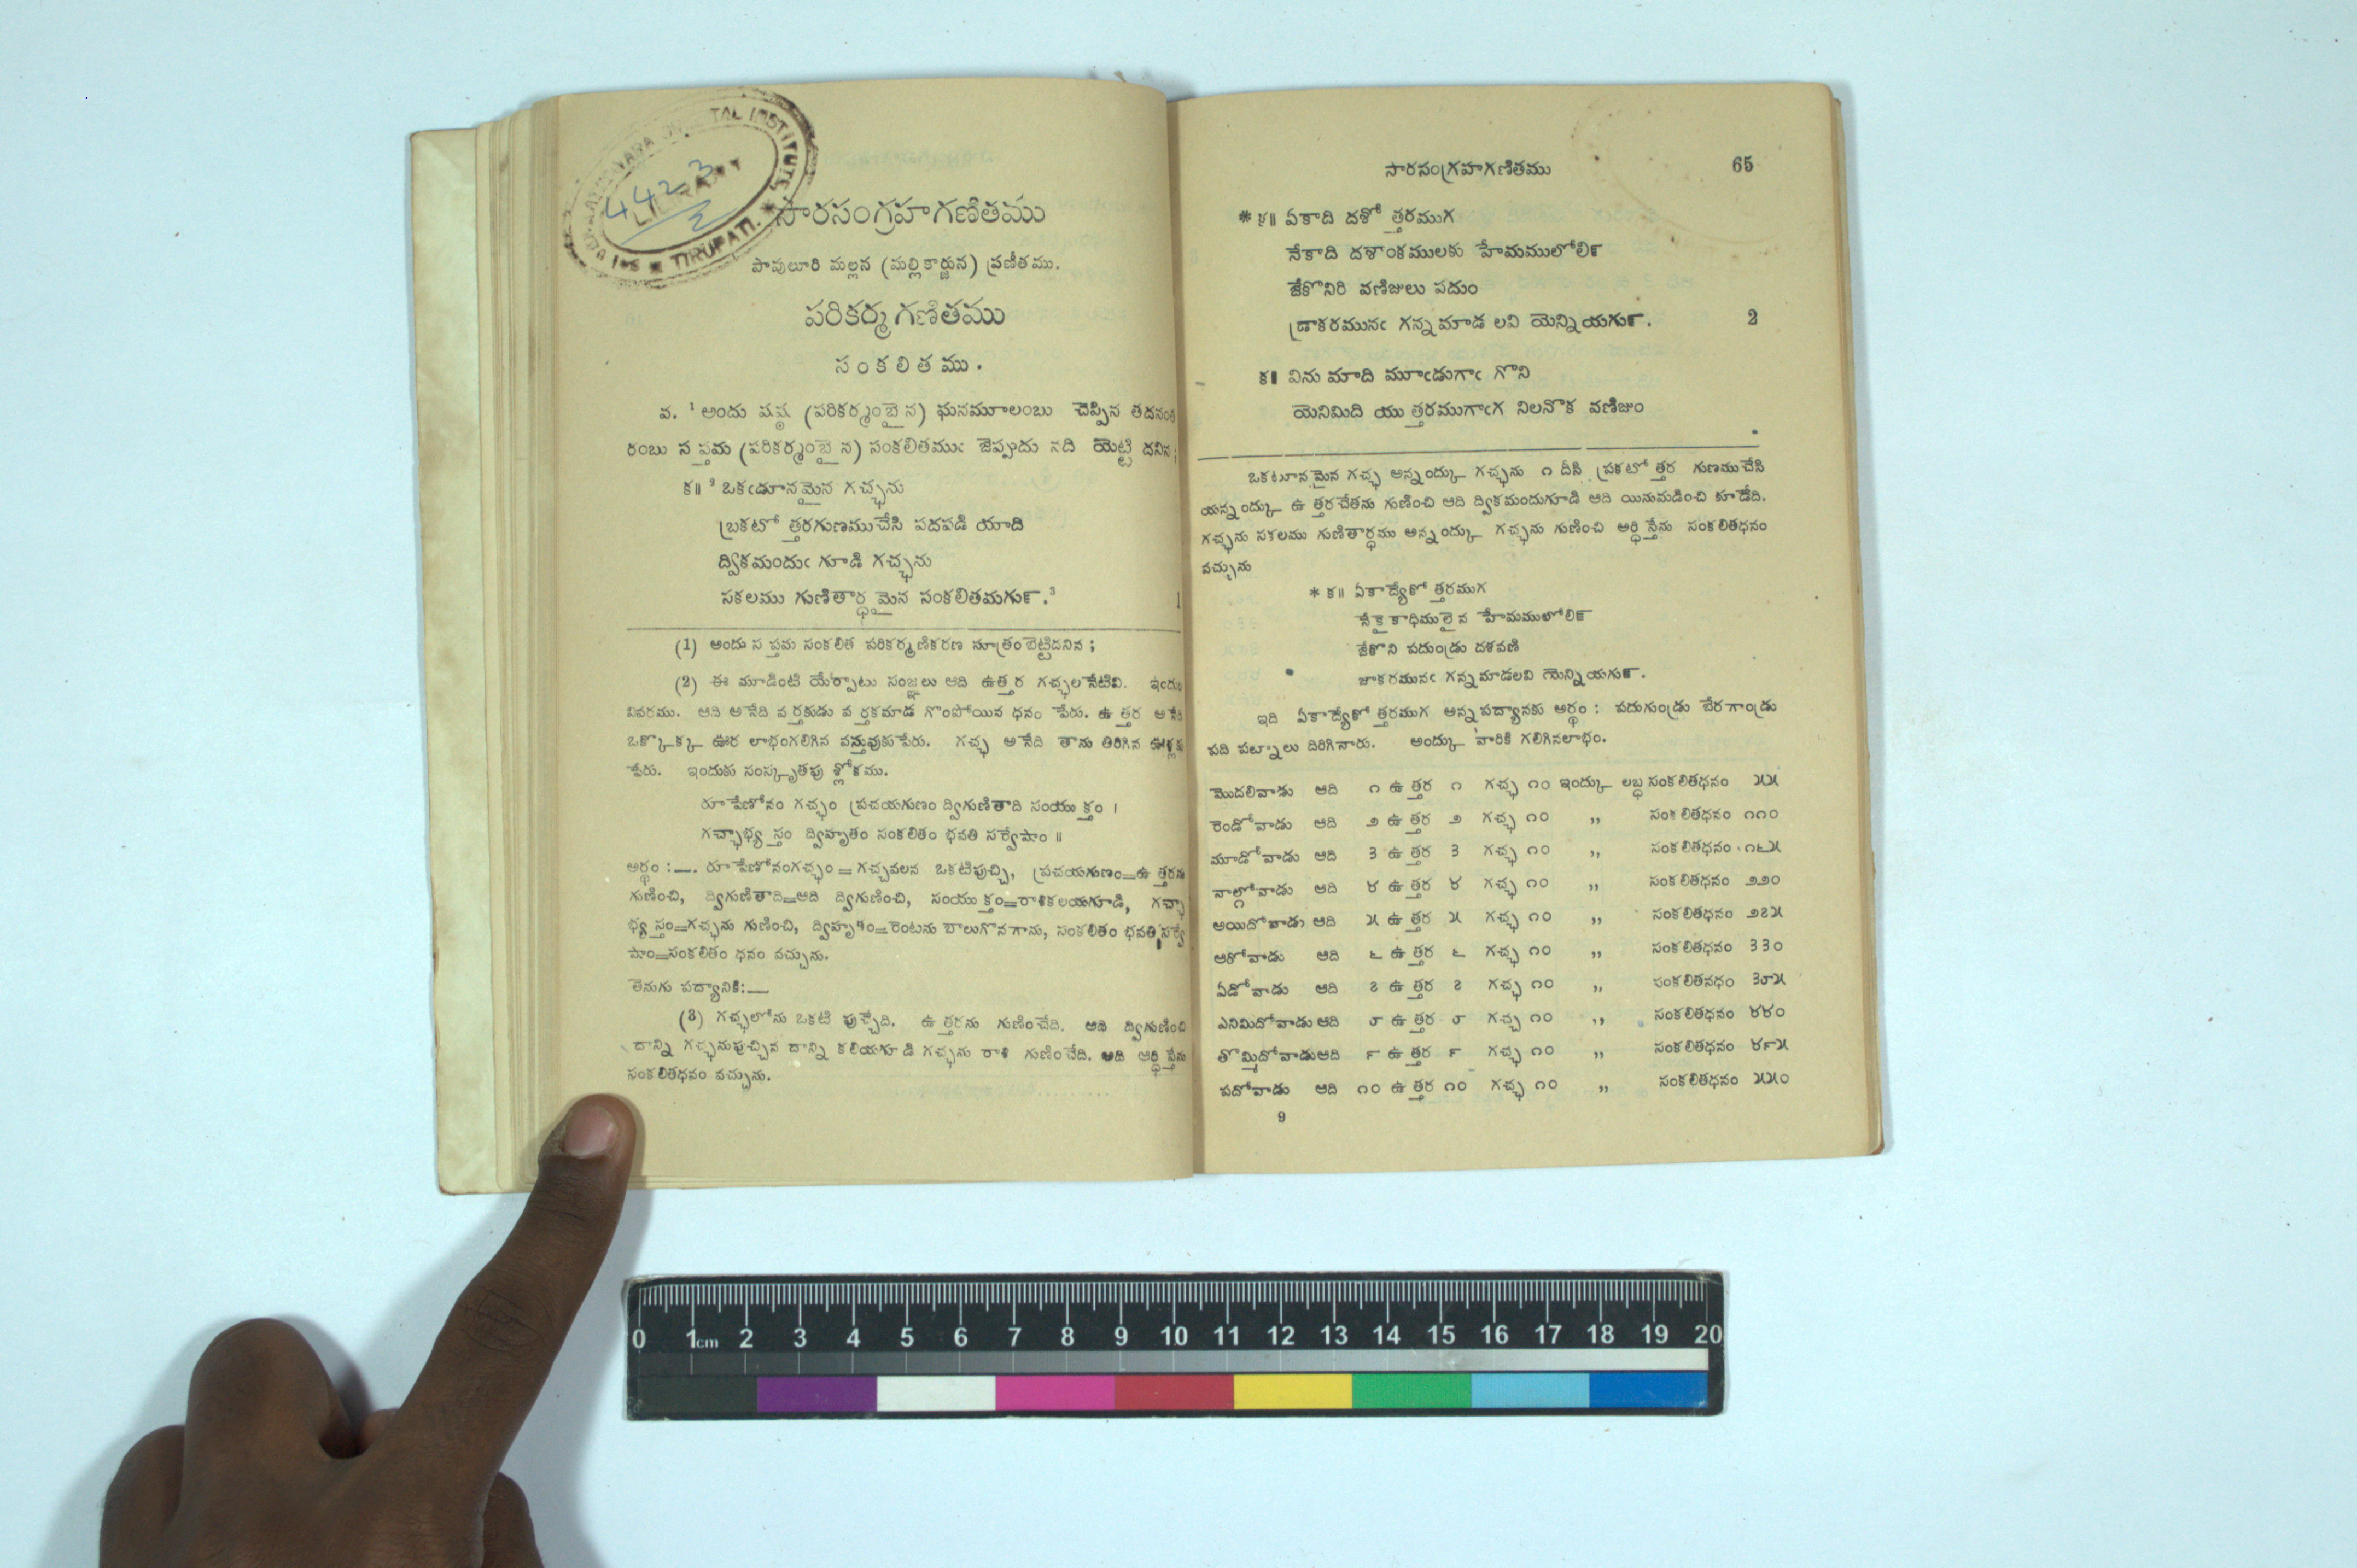 TIRUPATI.
LIBRARY
4423
సారసంగ్రహగణితము
పావులూరి మల్లన (మల్లికార్జున) ప్రణీతము.
పరికర్మగణితము
సంకలితము.
వ. ¹ అందు షష్ఠ (పరికర్మంబైన) ఘనమూలంబు చెప్పిన తదనంత
రంబు సప్తమ (పరికర్మంబైన) సంకలితముఁ జెప్పుదు నది యెట్టి దనిన;
క॥ ² ఒకఁడూనమైన గచ్ఛను
బ్రకటోత్తరగుణముచేసి పదపడి యాది
ద్వికమందుఁ గూడి గచ్ఛను
సకలము గుణితార్ధమైన సంకలితమగుఁ.³ 1
(1) అందు సప్తమ సంకలిత పరికర్మణికరణ సూత్రంబెట్టిదనిన;
(2) ఈ మూడింటి యేర్పాటు సంజ్ఞలు ఆది ఉత్తర గచ్ఛల నేటివి. ఇందుకు
వివరము. ఆది అనేది వర్తకుడు వర్తకమాడ గొంపోయిన ధనం పేరు. ఉత్తర అనేది
ఒక్కొక్క ఊర లాభంగలిగిన వస్తువుకుపేరు. గచ్ఛ అనేది తాను తిరిగిన ఊళ్లకు
పేరు. ఇందుకు సంస్కృతపు శ్లోకము.
రూపేణోనం గచ్ఛం ప్రచయగుణం ద్విగుణితాది సంయుక్తం ।
గచ్ఛాభ్యస్తం ద్విహృతం సంకలితం భవతి సర్వేషాం ॥
అర్థం :—. రూపేణోనంగచ్ఛం=గచ్ఛవలన ఒకటిపుచ్చి, ప్రచయగుణం=ఉత్తరను
గుణించి, ద్విగుణితాది=ఆది ద్విగుణించి, సంయుక్తం=రాశికలయగూడి, గచ్ఛా
భ్యస్తం=గచ్ఛను గుణించి, ద్విహృతం=రెంటను బాలుగొనగాను, సంకలితం భవతి సర్వే
షాం=సంకలితం ధనం వచ్చును.
తెనుగు పద్యానికి:—
(3) గచ్ఛలోను ఒకటి పుచ్చేది. ఉత్తరను గుణించేది. ఆది ద్విగుణించి
దాన్ని గచ్ఛనుపుచ్చిన దాన్ని కలియగూడి గచ్ఛను రాశి గుణించేది. అది అర్ధిస్తేను
సంకలితధనం వచ్చును.
సారసంగ్రహగణితము 65
* క॥ ఏకాది దశోత్తరముగ
నేకాది దశాంకములకు హేమములోలిఁ
జేకొనిరి వణిజులు పదుం
డ్రాకరమునఁ గన్నమాడ లవి యెన్నియగుఁ. 2
క॥ విను మాది మూఁడుగాఁ గొని
యెనిమిది యుత్తరముగాఁగ నిలనొక వణిజుం
ఒకటూనమైన గచ్ఛ అన్నంద్కు గచ్ఛను ౧ దీసి ప్రకటోత్తర గుణముచేసి
యన్నంద్కు ఉత్తరచేతను గుణించి ఆది ద్వికమందుగూడి ఆది యినుమడించి కూడేది.
గచ్ఛను సకలము గుణితార్ధము అన్నంద్కు గచ్ఛను గుణించి అర్ధిస్తేను సంకలితధనం
వచ్చును
* క॥ ఏకాద్యేకోత్తరముగ
నేకైకాధిములైన హేమములోలిఁ
జేకొని పదుండ్రు దశవణి
జాకరమునఁ గన్నమాడలవి యెన్నియగుఁ.
ఇది ఏకాద్యేకోత్తరముగ అన్నపద్యానకు అర్థం : పదుగుండ్రు బేరగాండ్రు
పది పట్నాలు దిరిగినారు. అంద్కు వారికి గలిగినలాభం.
మొదలివాడు ఆది ౧ ఉత్తర ౧ గచ్ఛ ౧౦ ఇంద్కు లబ్ధ సంకలితధనం ౫౫
రెండోవాడు ఆది ౨ ఉత్తర ౨ గచ్ఛ ౧౦ ,, సంకలితధనం ౧౧౦
మూడోవాడు ఆది ౩ ఉత్తర ౩ గచ్ఛ ౧౦ ,, సంకలితధనం ౧౬౫
నాల్గోవాడు ఆది ౪ ఉత్తర ౪ గచ్ఛ ౧౦ ,, సంకలితధనం ౨౨౦
అయిదోవాడు ఆది ౫ ఉత్తర ౫ గచ్ఛ ౧౦ ,, సంకలితధనం ౨౭౫
ఆరోవాడు ఆది ౬ ఉత్తర ౬ గచ్ఛ ౧౦ ,, సంకలితధనం ౩౩౦
ఏడోవాడు ఆది ౭ ఉత్తర ౭ గచ్ఛ ౧౦ ,, సంకలితనధం ౩౮౫
ఎనిమిదోవాడు ఆది ౮ ఉత్తర ౮ గచ్ఛ ౧౦ ,, సంకలితధనం ౪౪౦
తొమ్మిదోవాడుఆది ౯ ఉత్తర ౯ గచ్ఛ ౧౦ ,, సంకలితధనం ౪౯౫
పదోవాడు ఆది ౧౦ ఉత్తర ౧౦ గచ్ఛ ౧౦ ,, సంకలితధనం ౫౫౦
9
0 1cm 2 3 4 5 6 7 8 9 10 11 12 13 14 15 16 17 18 19 20